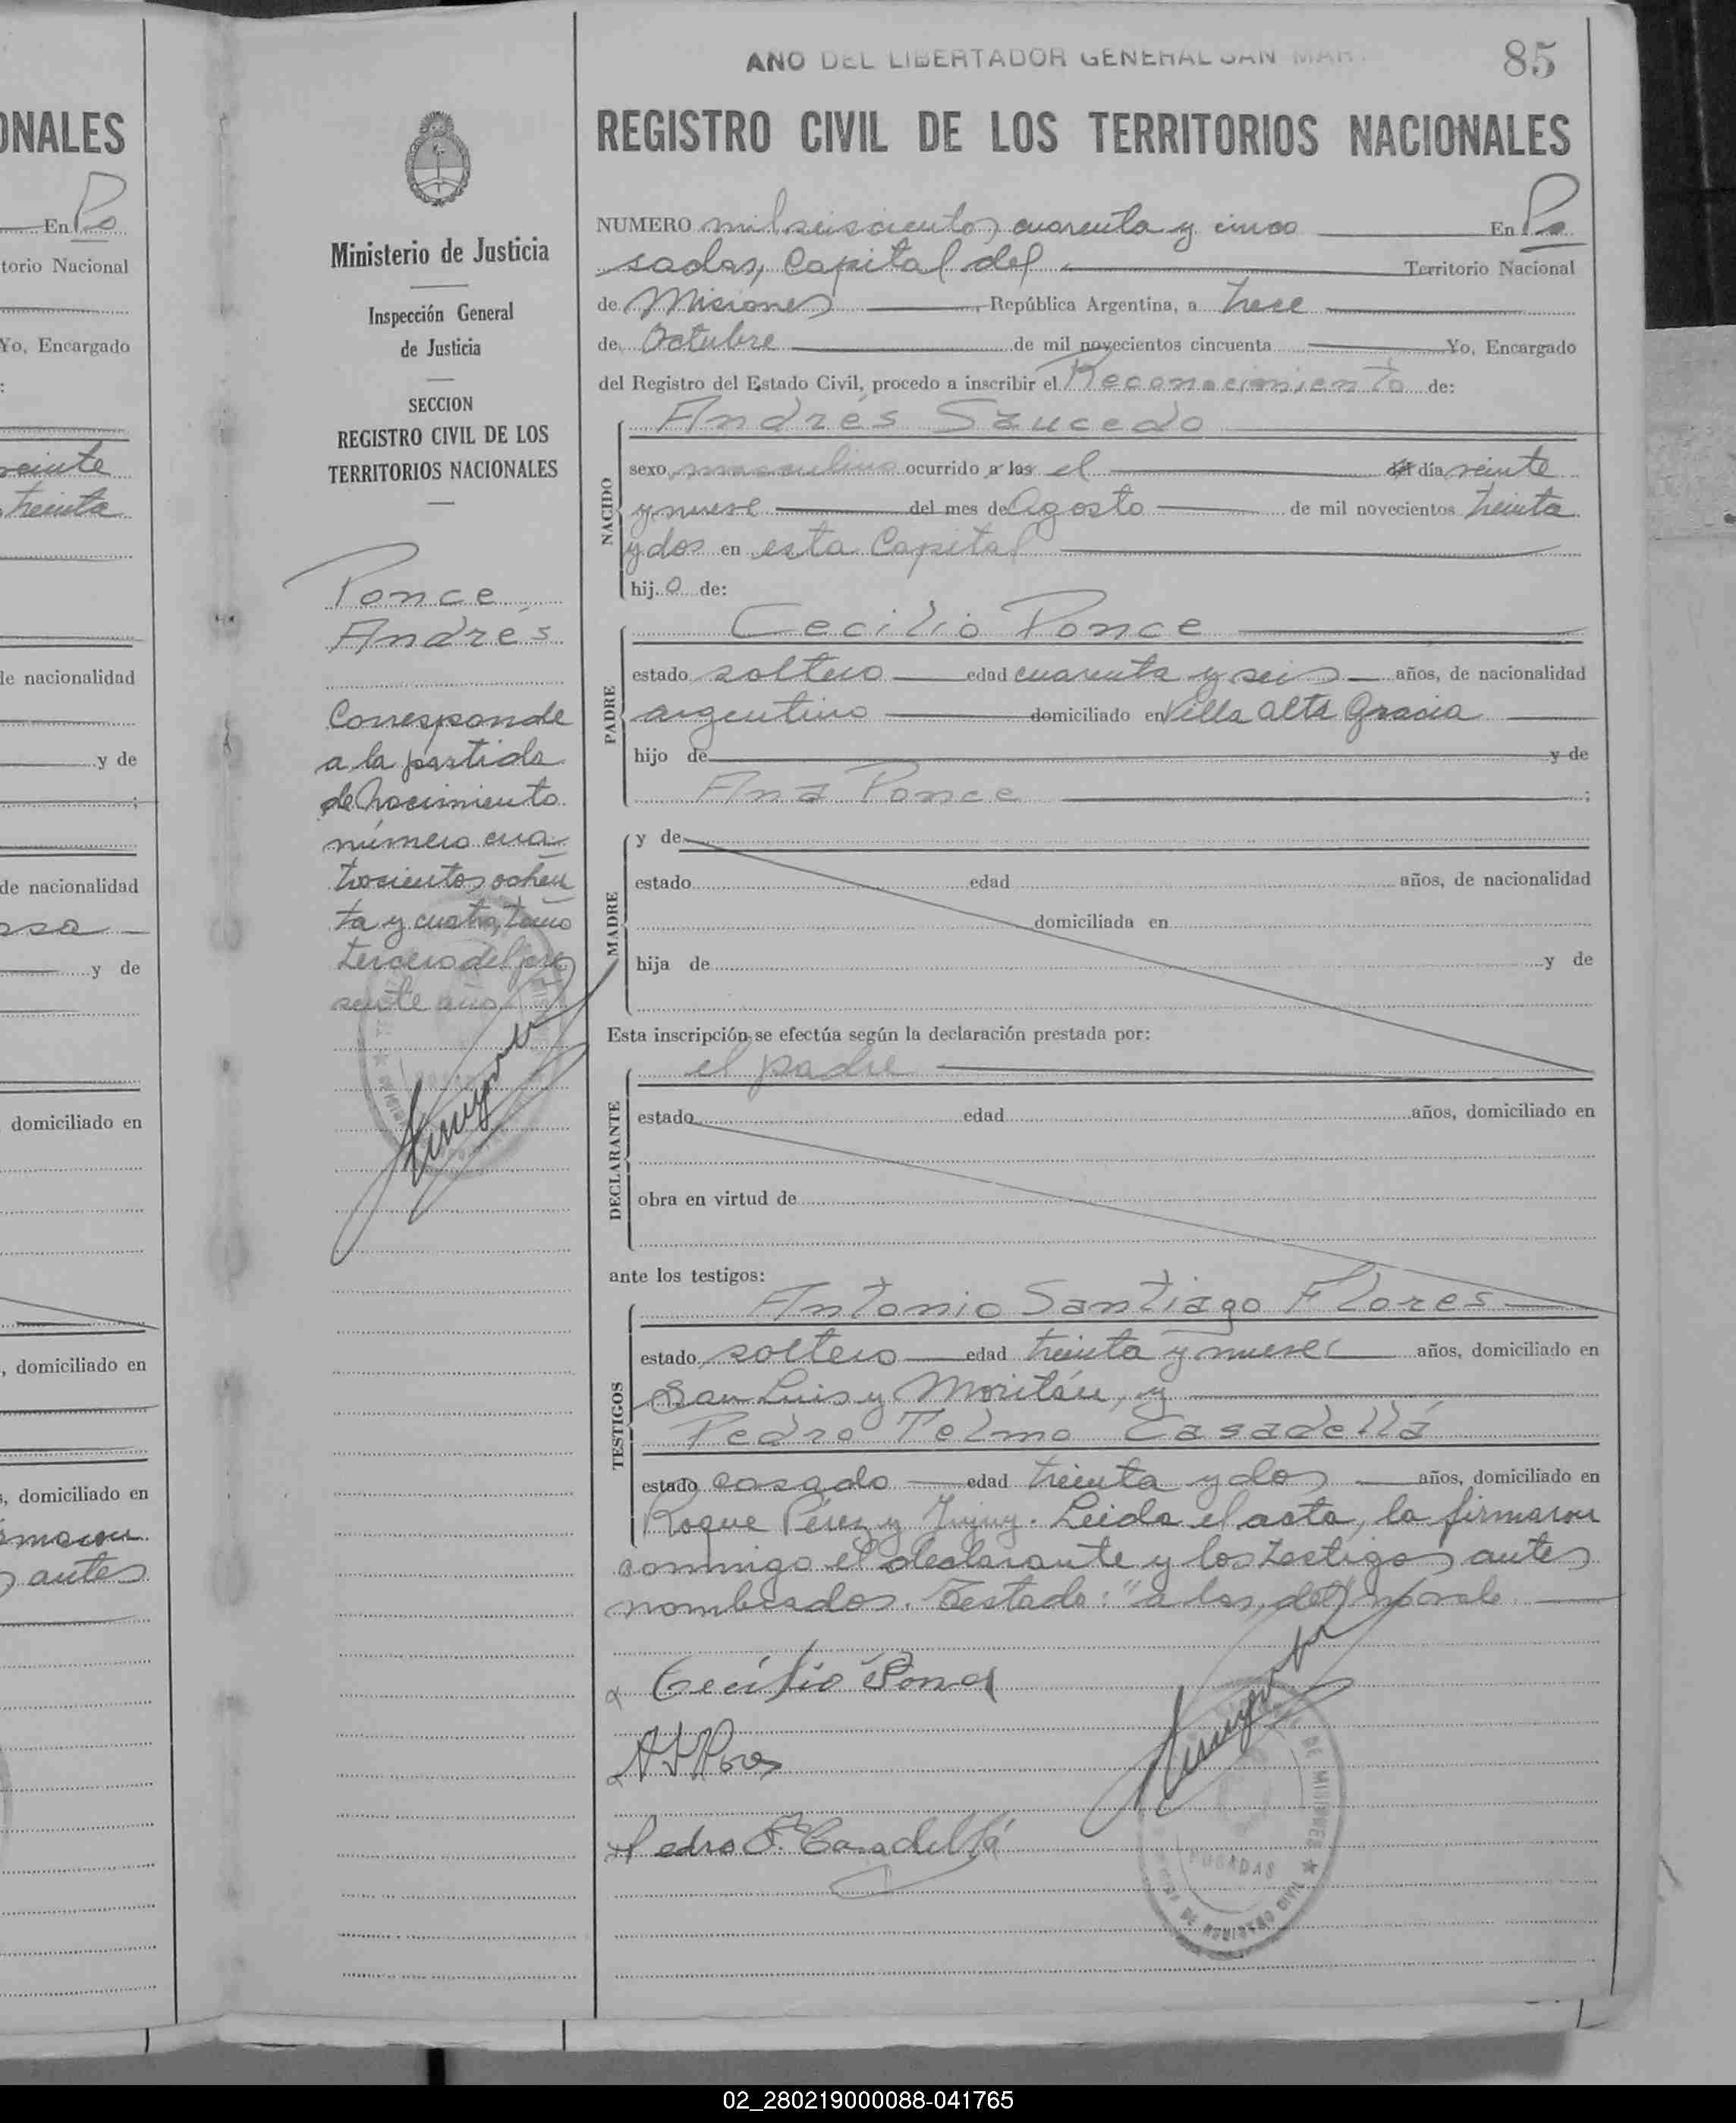 ONALES
En Po
torio Nacional
Yo, Encargado
:
veinte
treinta
de nacionalidad
y de
;
de nacionalidad
y de
domiciliado en
, domiciliado en
s, domiciliado en
antes
Ministerio de Justicia
Inspección General
de Justicia
SECCION
REGISTRO CIVIL DE LOS
TERRITORIOS NACIONALES
Ponce
Andrés
Corresponde
a la partida
de Nacimiento
número cua-
trocientos ochen-
ta y cuatro, tomo
tercero del pre
sente año
AÑO DEL LIBERTADOR GENERAL SAN MAR
85
REGISTRO CIVIL DE LOS TERRITORIOS NACIONALES
NUMERO mil seiscientos cuarenta y cinco En Po
sadas, Capital del Territorio Nacional
de Misiones, República Argentina, a trece
de Octubre de mil novecientos cincuenta Yo, Encargado
del Registro del Estado Civil, procedo a inscribir el Reconocimiento de:
Andrés Saucedo
NACIDO
sexo masculino ocurrido a las el del día veinte
y nueve del mes de Agosto de mil novecientos treinta
y dos en esta Capital
hijo de:
PADRE
Cecilio Ponce
estado soltero edad cuarenta y seis años, de nacionalidad
argentino domiciliado en Villa Alta Gracia
hijo de y de
Ana Ponce ;
MADRE
y de
estado edad años, de nacionalidad
domiciliada en
hija de y de
Esta inscripción se efectúa según la declaración prestada por:
el padre
DECLARANTE
estado edad años, domiciliado en
obra en virtud de
ante los testigos:
TESTIGOS
Antonio Santiago Flores
estado soltero edad treinta y nueve años, domiciliado en
San Luis y Moritán, y
Pedro Telmo Casadellá
estado casado edad treinta y dos años, domiciliado en
Roque Pérez y Jujuy. Leida el acta, la firmaron
conmigo el declarante y los testigos antes
nombrados. Testado: "a las, del" no vale
Cecilio Ponce
Pedro T. Casadellá
DE MISIONES
POSADAS
DE REGISTRO CIVIL
02_280219000088-041765